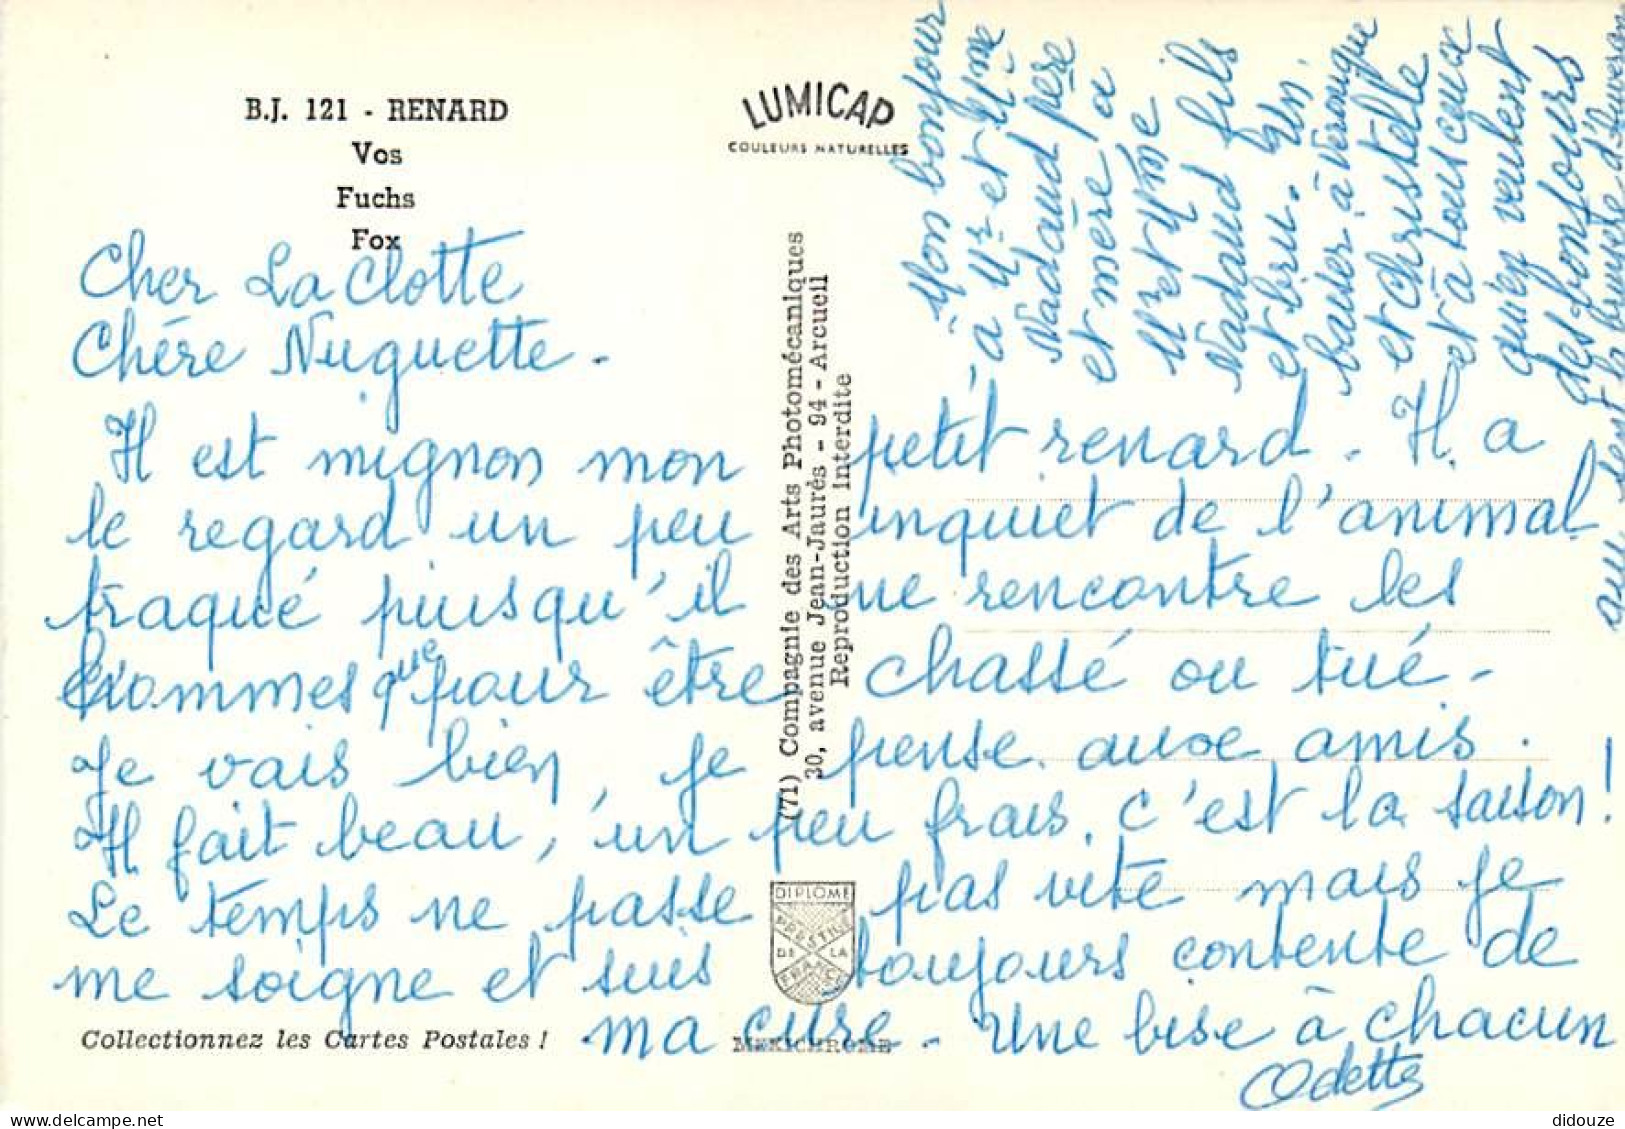 B.J. 121 - RENARD
Vos
Fuchs
Fox
LUMICAP
COULEURS NATURELLES
Cher La Clotte
Chère Nuguette -
Il est mignon mon petit renard. Il a
le regard un peu inquiet de l'animal
traqué puisqu'il ne rencontre les
hommes que pour être chassé ou tué -
Je vais bien, je pense aux amis.
Il fait beau, un peu frais, c'est la saison!
Le temps ne passe pas vite mais je
me soigne et suis toujours contente de
ma cure - Une bise à chacun
Odette
Mon bonjour
à Mr et Mme
Nadaud père
et mère à
Mr et Mme
Nadaud fils
et bru. Un
baiser à Véronique
et Christelle
et à tous ceux
qui en veulent
des bonjours
(71) Compagnie des Arts Photomécaniques
30, avenue Jean-Jaurès - 94 - Arcueil
Reproduction Interdite
DIPLOME
PRESTIGE
DE LA
FRANCE
Collectionnez les Cartes Postales !
MEXICHROME
didouze